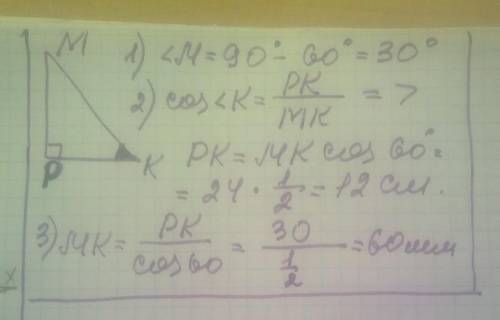 M
1) <M = 90° - 60° = 30°
2) cos<K = PK/MK =>
P
K
PK = MK cos 60° =
= 24 · 1/2 = 12 см.
3) MK = PK/cos60 = 30/(1/2) = 60мм
x